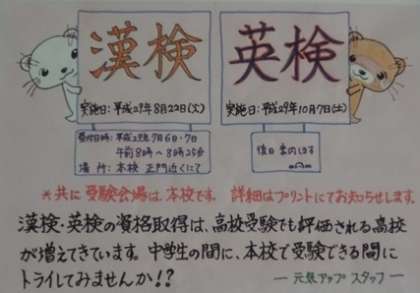 漢検
英検
実施日:平成29年8月22日(火)
実施日:平成29年10月7日(土)
受付日時:平成29年7月6日・7日
午前8時〜8時25分
場所:本校 正門近くにて
後日 案内します
*共に 受験会場は、本校です。 詳細はプリントにてお知らせします。
漢検・英検の資格取得は、高校受験でも評価される高校
が増えてきています。中学生の間に、本校で受験できる間に
トライしてみませんか!?
― 元気アップ スタッフ ―